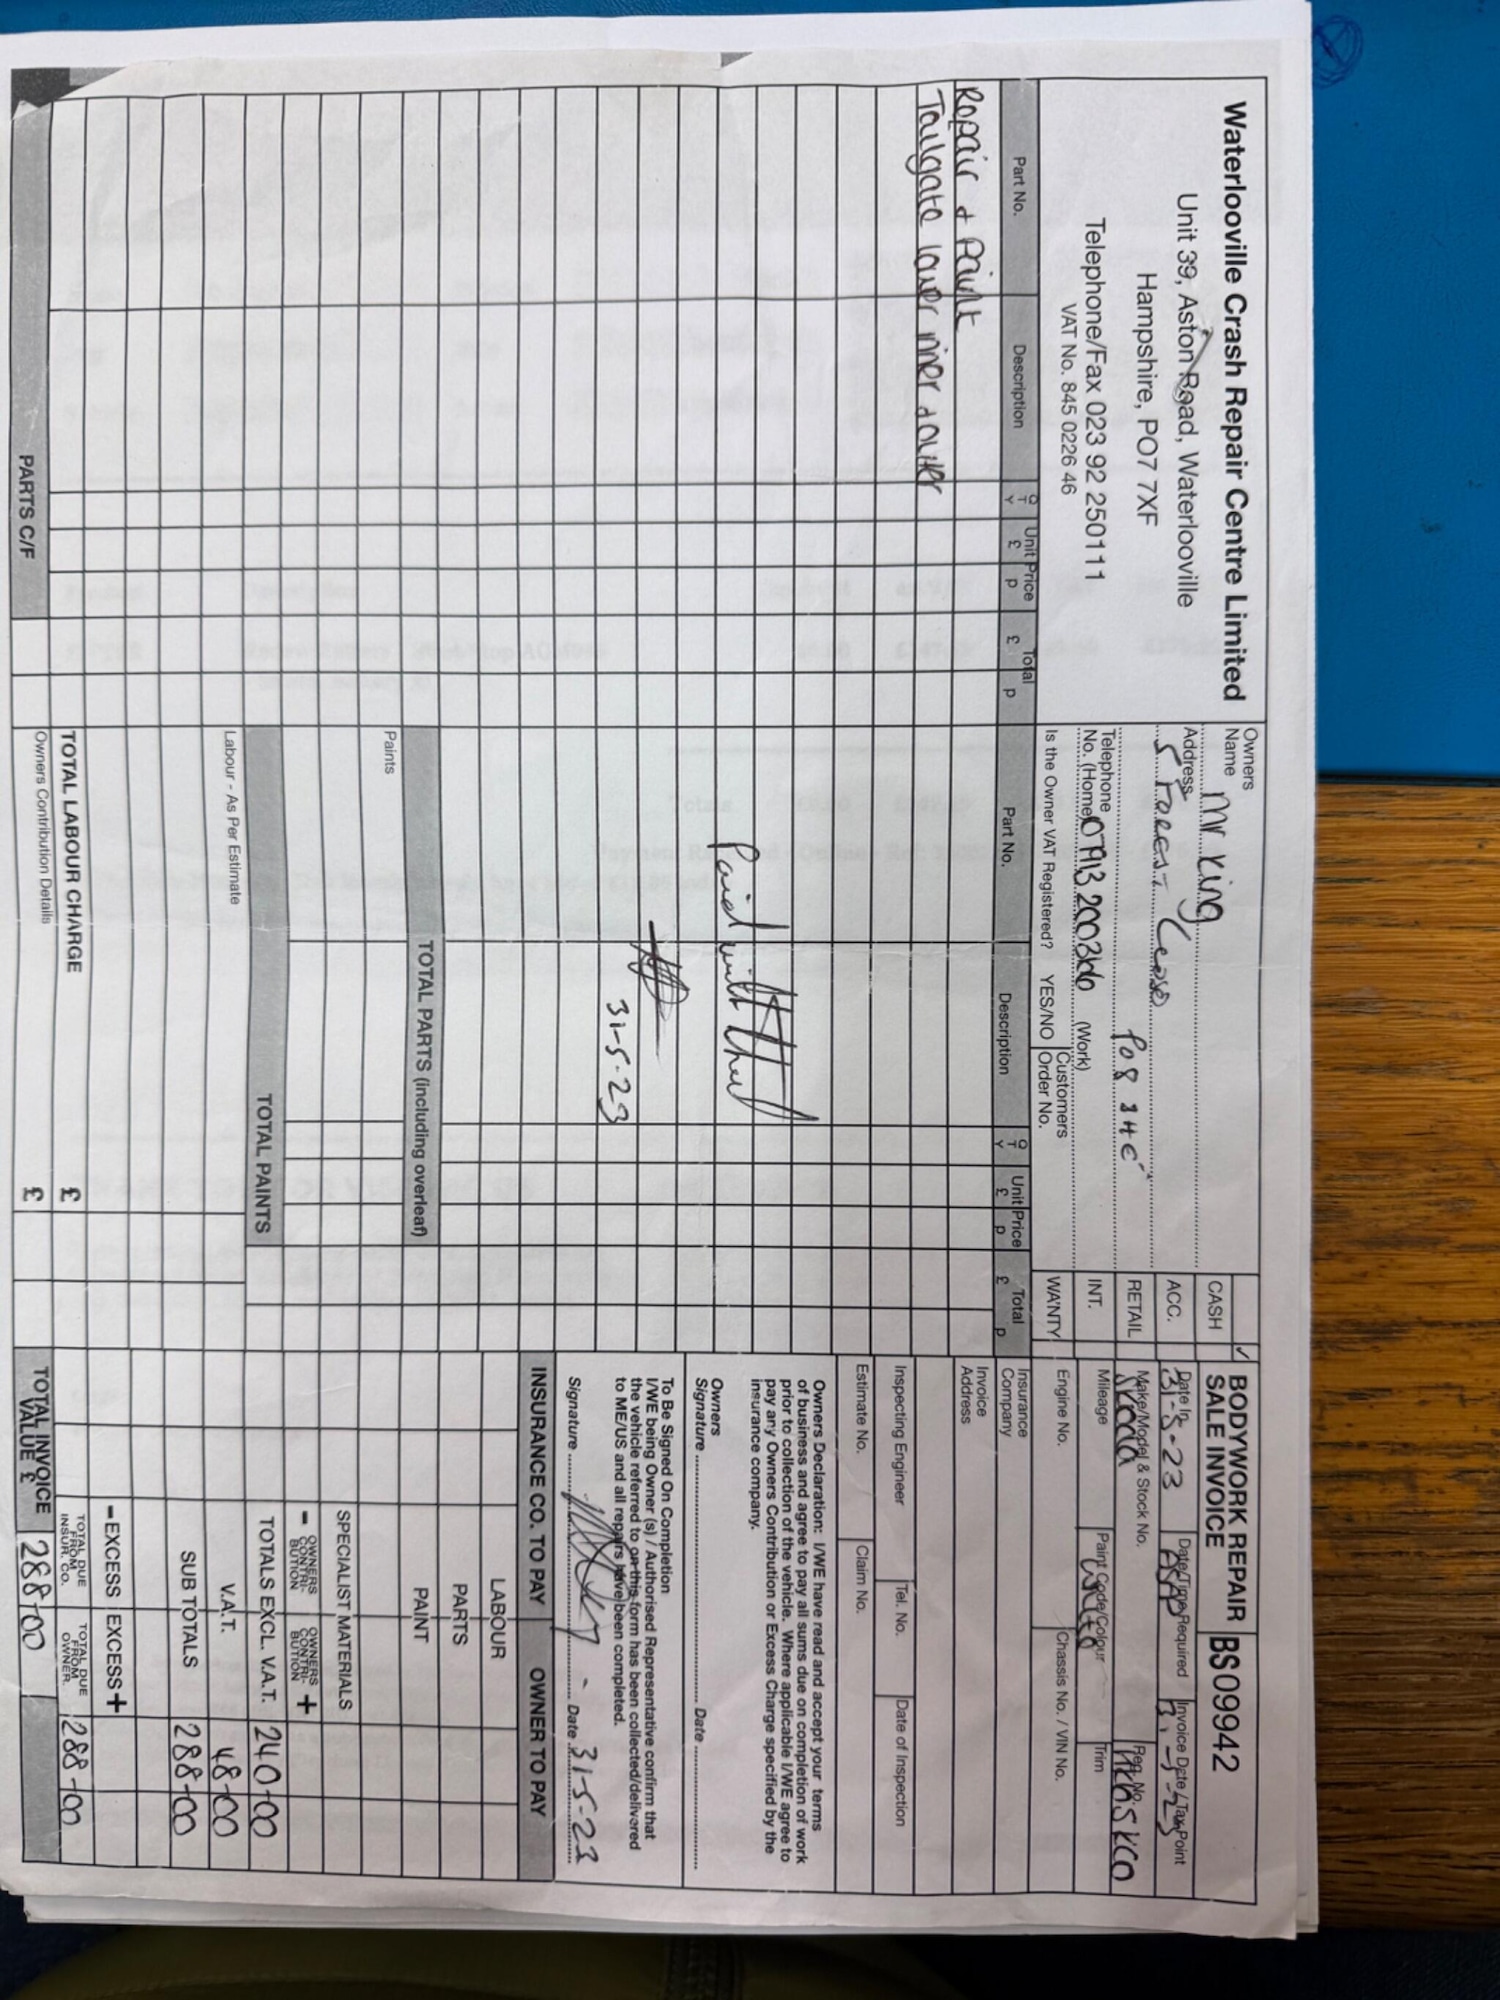 Waterlooville Crash Repair Centre Limited
Unit 39, Aston Road, Waterlooville
Hampshire, PO7 7XF
Telephone/Fax 023 92 250111
VAT No. 845 0226 46
Owners
Name Mr King
Address
5 Forest Close
PO8
Telephone
No. (Home) (Work)
Is the Owner VAT Registered? YES/NO
Customers
Order No.
✓
CASH
ACC.
RETAIL
INT.
WA'NTY
BODYWORK REPAIR
SALE INVOICE
BS09942
Date In
31-5-23
Date/Time Required
ASAP
Invoice Date / Tax Point
Make/Model & Stock No.
Skoda
Reg. No.
Mileage
Paint Code/Colour
White
Trim
Engine No.
Chassis No. / VIN No.
Insurance
Company
Invoice
Address
Inspecting Engineer
Tel. No.
Date of Inspection
Estimate No.
Claim No.
Part No. Description QTY Unit Price £ p Total £ p
Part No. Description QTY Unit Price £ p Total £ p
Repair & Paint
Tailgate lower inner & outer
Paid with
31-5-23
Owners Declaration: I/WE have read and accept your terms
of business and agree to pay all sums due on completion of work
prior to collection of the vehicle. Where applicable I/WE agree to
pay any Owners Contribution or Excess Charge specified by the
insurance company.
Owners
Signature Date
To Be Signed On Completion
I/WE being Owner (s) / Authorised Representative confirm that
the vehicle referred to on this form has been collected/delivered
to ME/US and all repairs have been completed.
Signature Date 31-5-23
INSURANCE CO. TO PAY OWNER TO PAY
LABOUR
PARTS
PAINT
SPECIALIST MATERIALS
- OWNERS CONTRI-BUTION OWNERS CONTRI-BUTION +
TOTALS EXCL. V.A.T. 240-00
V.A.T. 48-00
SUB TOTALS 288-00
-EXCESS EXCESS+
TOTAL DUE FROM INSUR. CO. TOTAL DUE FROM OWNER. 288-00
TOTAL INVOICE
VALUE £ 288-00
TOTAL PARTS (including overleaf)
Paints
TOTAL PAINTS
Labour - As Per Estimate
TOTAL LABOUR CHARGE £
Owners Contribution Details £
PARTS C/F